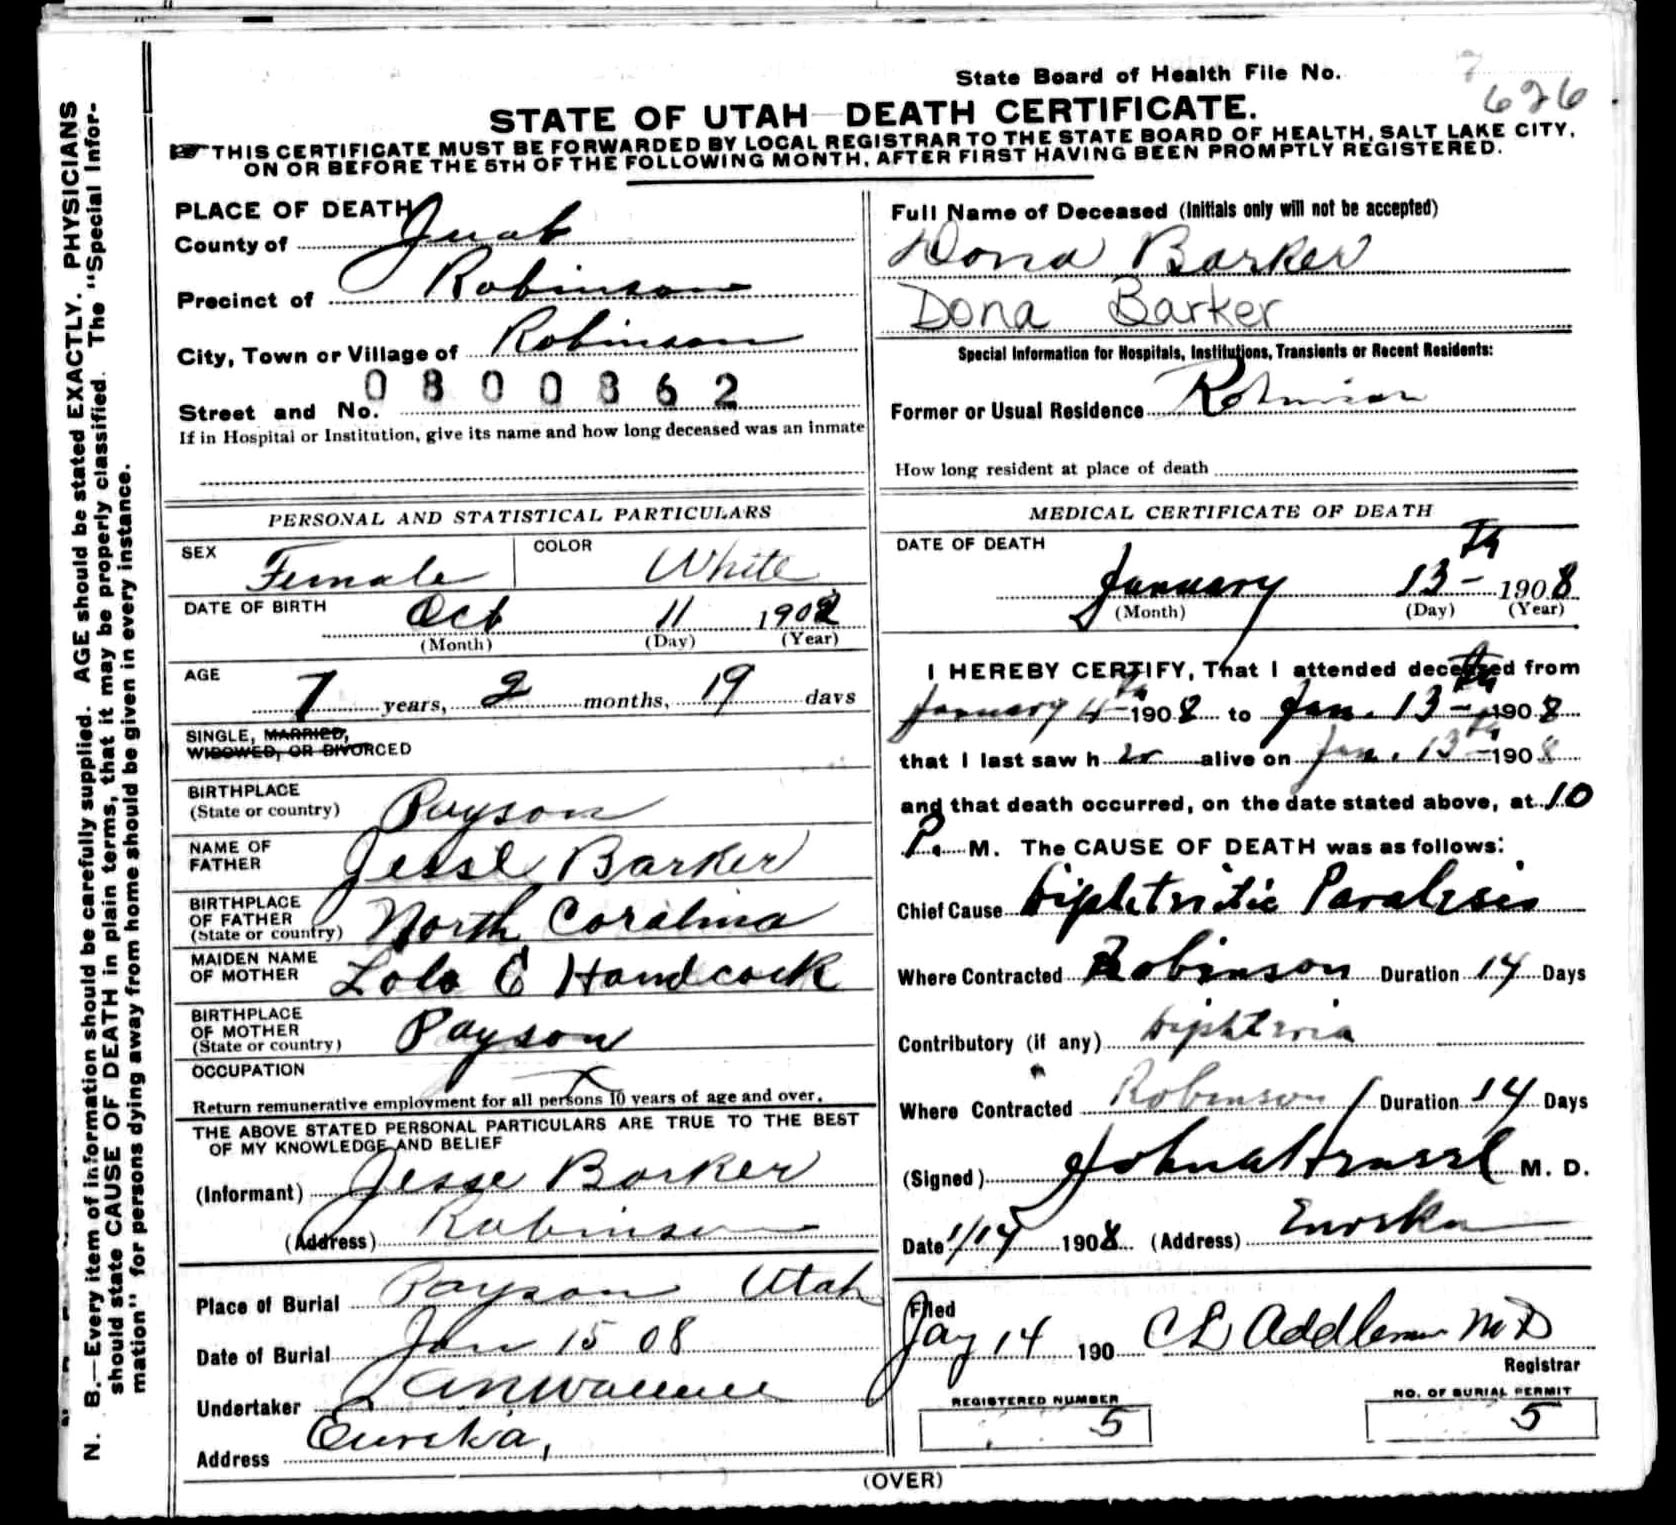 State Board of Health File No. 626
STATE OF UTAH DEATH CERTIFICATE.
THIS CERTIFICATE MUST BE FORWARDED BY LOCAL REGISTRAR TO THE STATE BOARD OF HEALTH, SALT LAKE CITY,
ON OR BEFORE THE 5TH OF THE FOLLOWING MONTH, AFTER FIRST HAVING BEEN PROMPTLY REGISTERED.
N. B.—Every item of information should be carefully supplied. AGE should be stated EXACTLY. PHYSICIANS
should state CAUSE OF DEATH in plain terms, that it may be properly classified. The "Special Infor-
mation" for persons dying away from home should be given in every instance.
PLACE OF DEATH
County of Juab
Precinct of Robinson
City, Town or Village of Robinson
0800362
Street and No.
If in Hospital or Institution, give its name and how long deceased was an inmate
PERSONAL AND STATISTICAL PARTICULARS
SEX Female COLOR White
DATE OF BIRTH Oct 11
(Month) (Day) (Year)
AGE 7 years, 2 months, 19 days
SINGLE, MARRIED,
WIDOWED, OR DIVORCED
BIRTHPLACE
(State or country) Payson
NAME OF
FATHER Jesse Barker
BIRTHPLACE
OF FATHER
(State or country) North Coralina
MAIDEN NAME
OF MOTHER Lola E Handcock
BIRTHPLACE
OF MOTHER
(State or country) Payson
OCCUPATION
Return remunerative employment for all persons 10 years of age and over.
THE ABOVE STATED PERSONAL PARTICULARS ARE TRUE TO THE BEST
OF MY KNOWLEDGE AND BELIEF
(Informant) Jesse Barker
(Address) Robinson
Place of Burial Payson Utah
Date of Burial Jan 15 08
Undertaker
Address Eureka,
Full Name of Deceased (Initials only will not be accepted)
Dona Barker
Dona Barker
Special Information for Hospitals, Institutions, Transients or Recent Residents:
Former or Usual Residence Robinson
How long resident at place of death
MEDICAL CERTIFICATE OF DEATH
DATE OF DEATH
January 13th 1908
(Month) (Day) (Year)
I HEREBY CERTIFY, That I attended deceased from
January 4th 1908 to Jan. 13th 1908
that I last saw h er alive on Jan. 13th 1908
and that death occurred, on the date stated above, at 10
P. M. The CAUSE OF DEATH was as follows:
Chief Cause Diphtritic Paralysis
Where Contracted Robinson Duration 14 Days
Contributory (if any) Diphteria
Where Contracted Robinson Duration 14 Days
(Signed) M. D.
Date 1/14 1908 (Address) Eureka
Filed
Jay 14 190 C L Addleman MD
Registrar
REGISTERED NUMBER
5
NO. OF BURIAL PERMIT
5
(OVER)